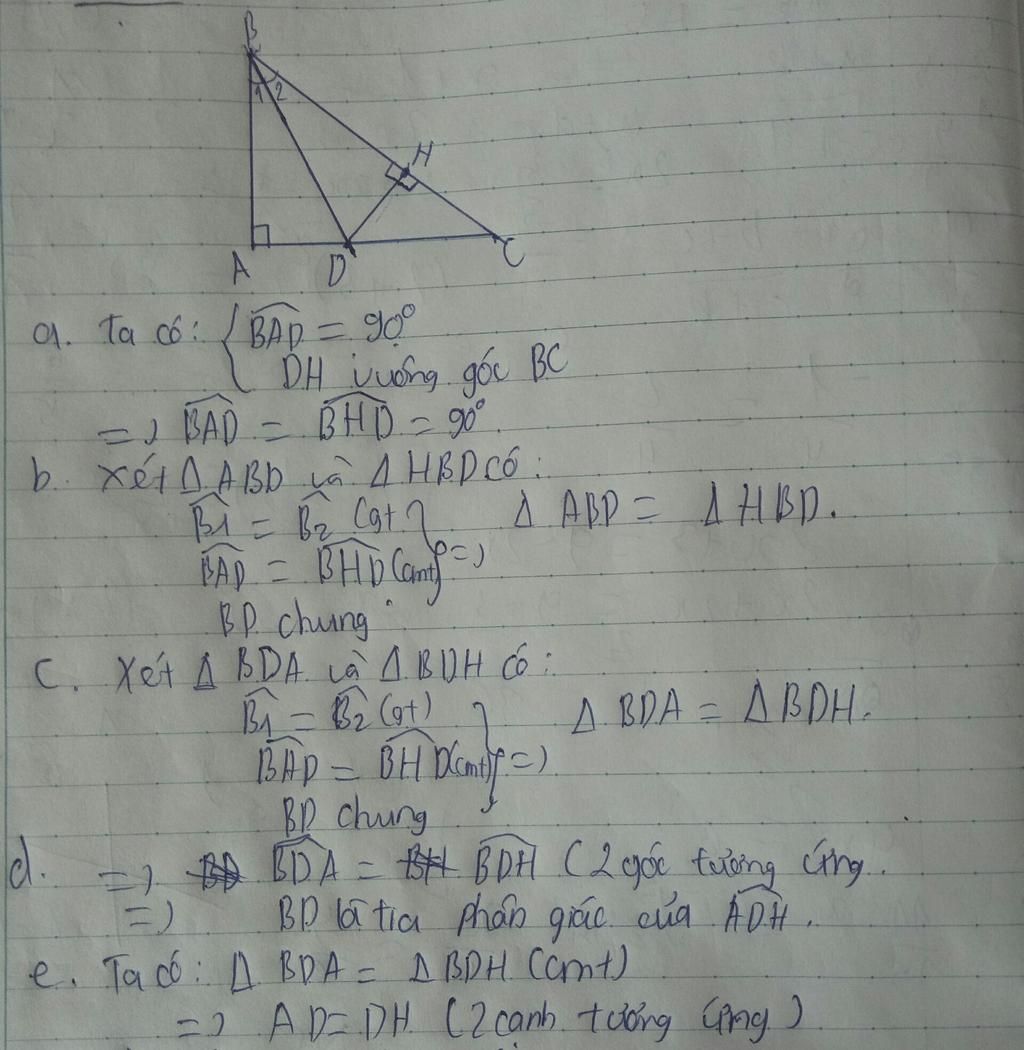 B
1 2
H
A D C
a. Ta có: { BAD = 90°
DH vuông góc BC
=> BAD = BHD = 90°
b. Xét Δ ABD và Δ HBD có:
B1 = B2 (gt } Δ ABD = Δ HBD.
BAD = BHD (cmt) =>
BD chung
c. Xét Δ BDA và Δ BDH có:
B1 = B2 (gt) } Δ BDA = Δ BDH.
BAD = BHD (cmt) =>
BD chung
d. => BDA = BDH (2 góc tương ứng.
=> BD là tia phân giác của ADH.
e. Ta có: Δ BDA = Δ BDH (cmt)
=> AD = DH (2 cạnh tương ứng)